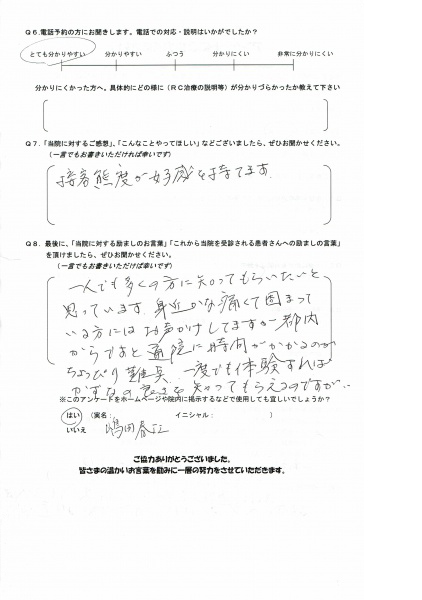 Q6.電話予約の方にお聞きします。電話での対応・説明はいかがでしたか？
とても分かりやすい　分かりやすい　ふつう　分かりにくい　非常に分かりにくい
分かりにくかった方へ。具体的にどの様に（ＲＣ治療の説明等）が分かりづらかったか教えて下さい
Q7.「当院に対するご感想」、「こんなことやってほしい」などございましたら、ぜひお聞かせください。
（一言でもお書きいただければ幸いです）
接客態度が好感を持てます.
Q8. 最後に、「当院に対する励ましのお言葉」「これから当院を受診される患者さんへの励ましの言葉」
を頂けましたら、ぜひお聞かせください。
（一言でもお書きいただけば幸いです）
一人でも多くの方に知ってもらいたいと
思っています.身近かな痛くて困まって
いる方にはお声がけしてますが都内
からですと通院に時間がかかるのが
ちょっぴり難点.一度でも体験すれば
の良さを知ってもらえるのですが..
※このアンケートをホームページや院内に掲示するなどで使用しても宜しいでしょうか？
はい　（実名：　イニシャル：　）
いいえ　嶋田春江
ご協力ありがとうございました。
皆さまの温かいお言葉を励みに一層の努力をさせていただきます。